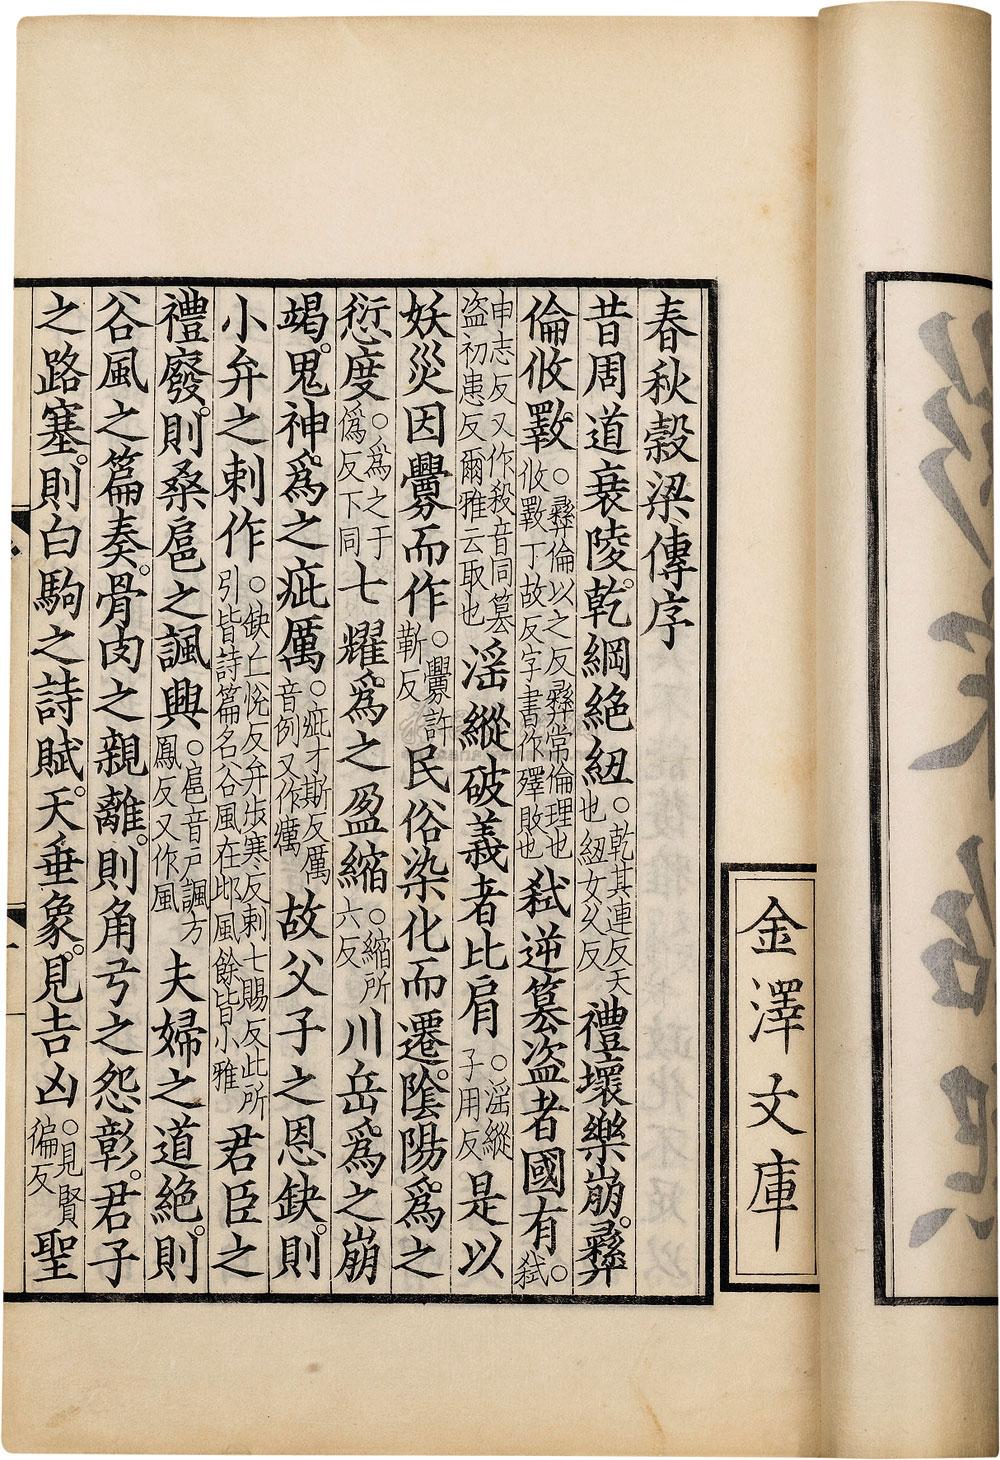 金澤文庫
春秋穀梁傳序
昔周道衰陵。乾綱絶紐○乾其連反天也紐女久反禮壞樂崩。彝
倫攸斁○彝倫以之反彝常倫理也攸斁丁故反字書作殬敗也弑逆篡盗者國有。○弑
申志反又作殺音同篡盗初患反爾雅云取也淫縱破義者比肩○淫縱子用反是以
妖災因釁而作○釁許靳反民俗染化而遷。陰陽爲之
愆度○爲之于僞反下同七耀爲之盈縮○縮所六反川岳爲之崩
竭。鬼神爲之疵厲○疵才斯反厲音例又作癘故父子之恩缺。則
小弁之刺作○缺丘悅反弁步寒反刺七賜反此所引皆詩篇名谷風在邶風餘皆小雅君臣之
禮廢。則桑扈之諷興○扈音戶諷方鳳反又作風夫婦之道絶。則
谷風之篇奏。骨肉之親離。則角弓之怨彰。君子
之路塞。則白駒之詩賦。天垂象。見吉凶○見賢徧反聖